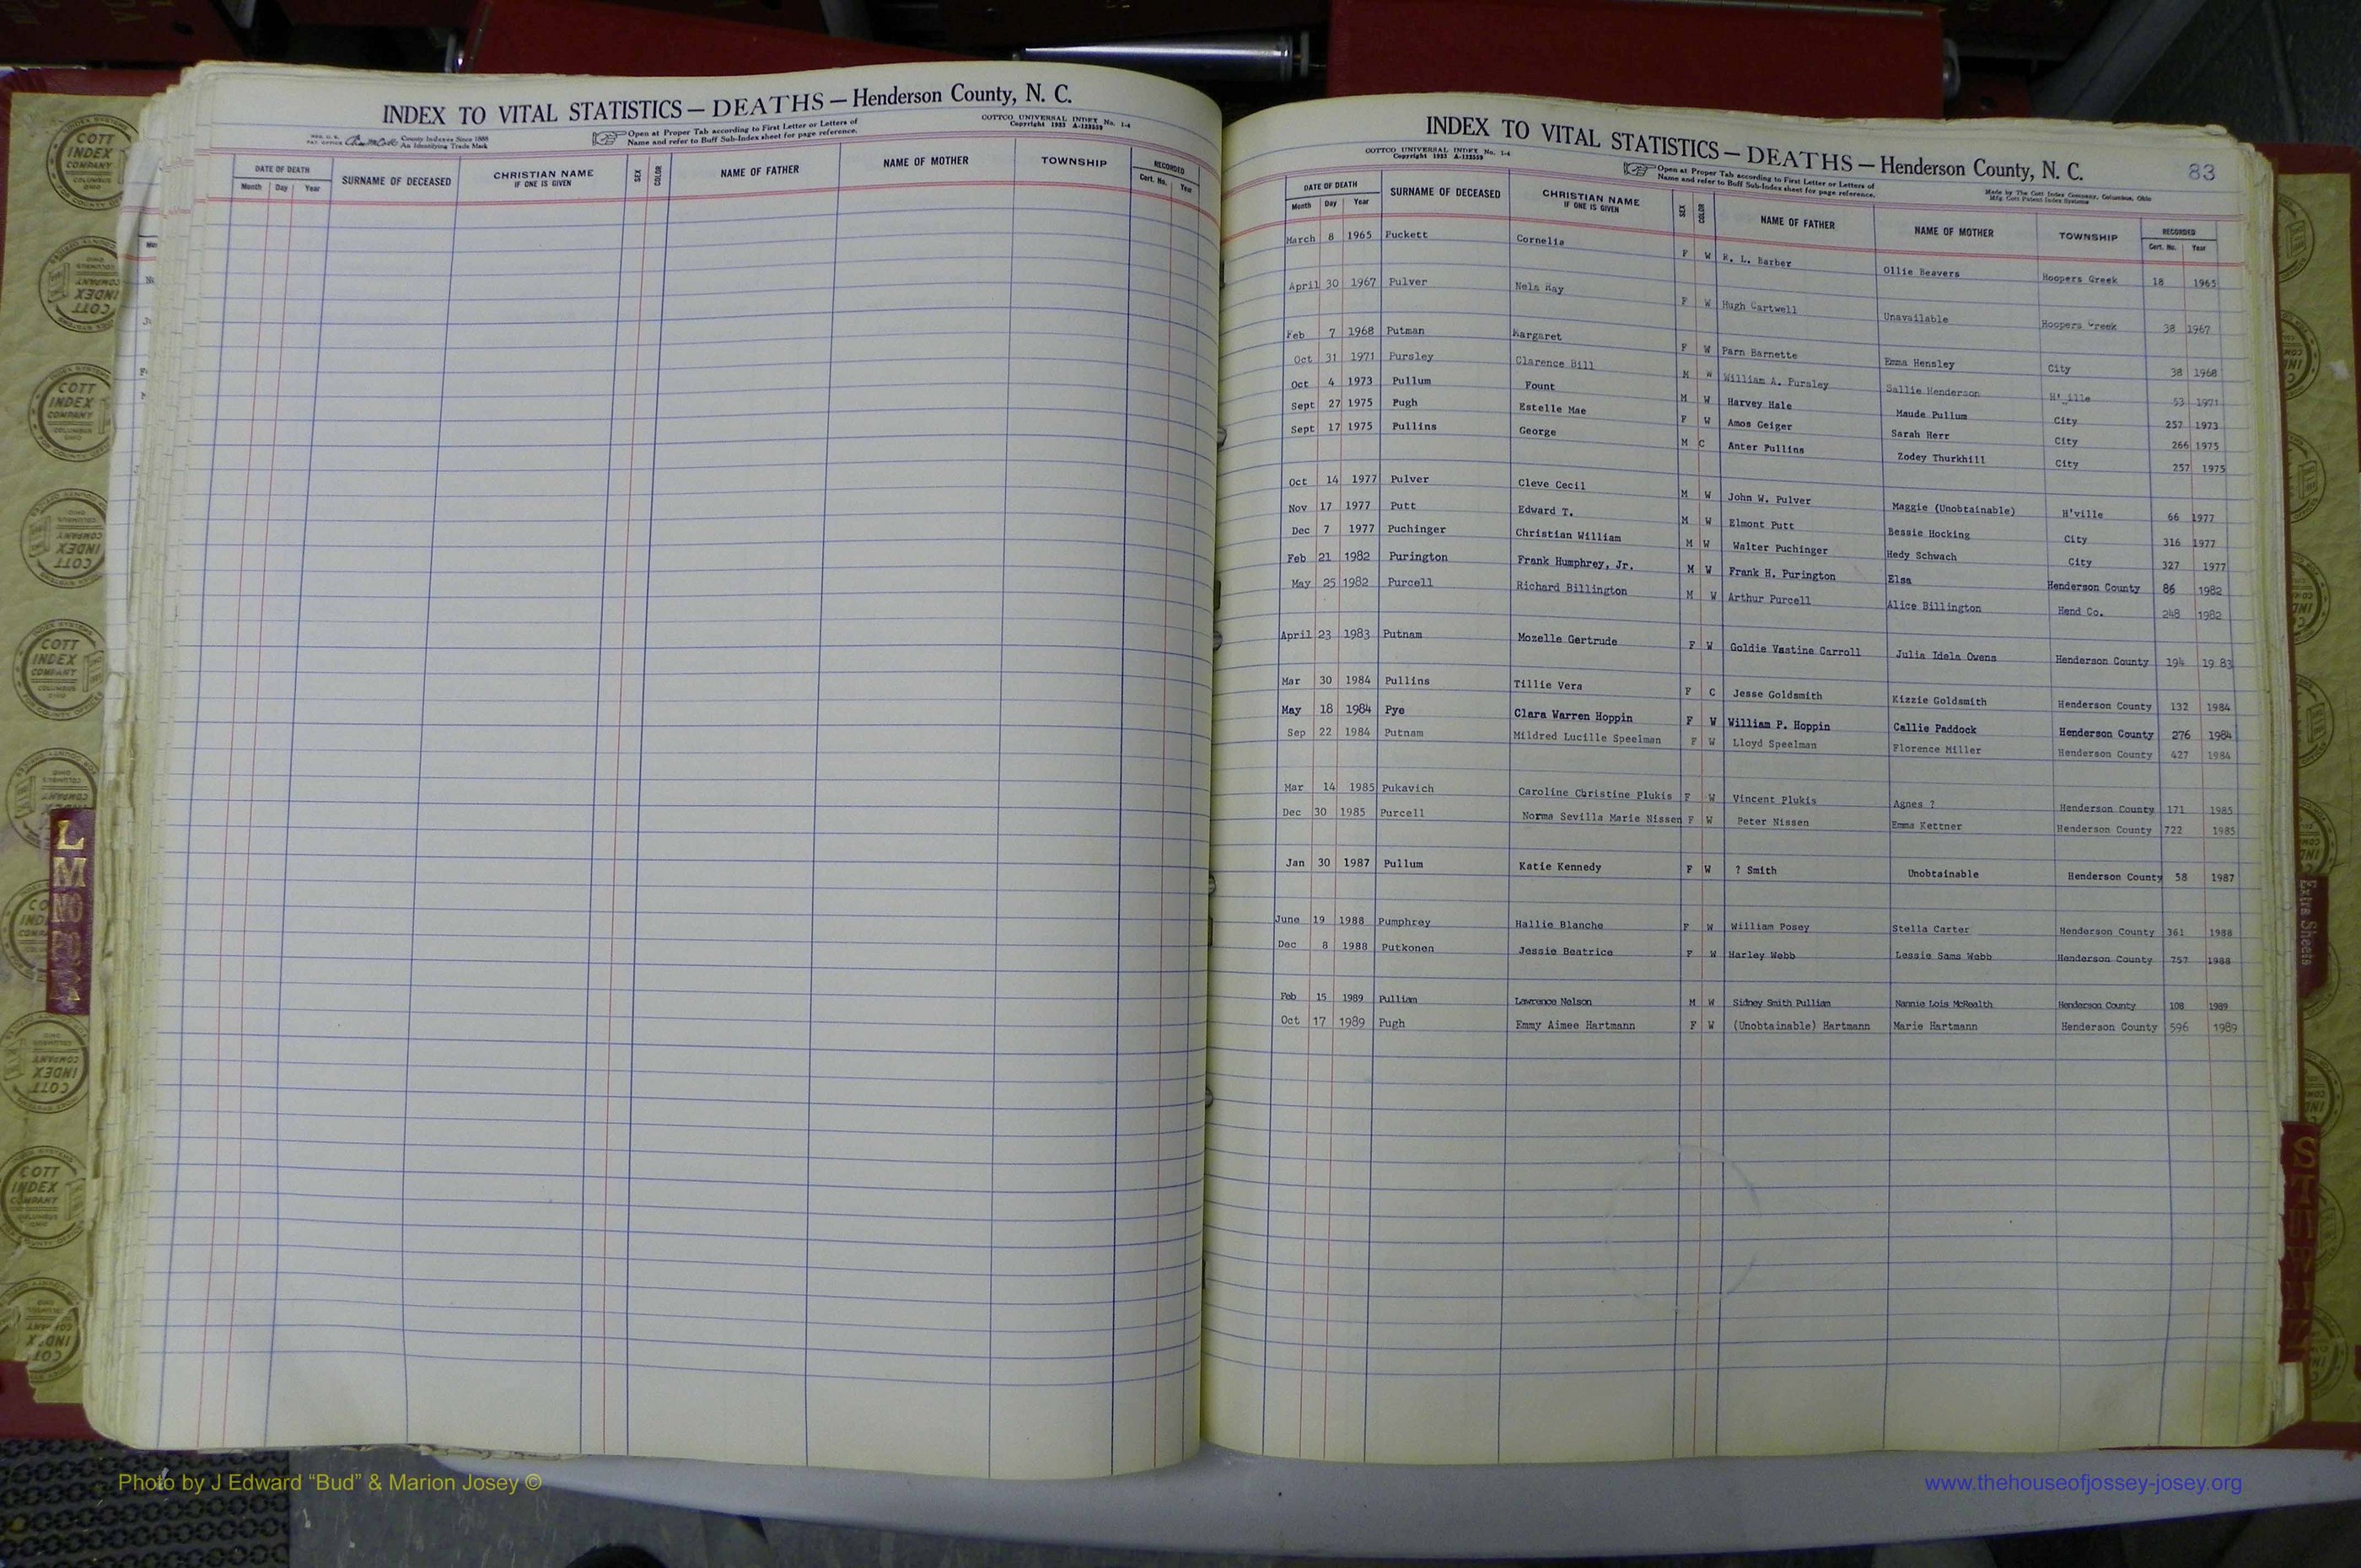 INDEX TO VITAL STATISTICS — DEATHS — Henderson County, N. C.
REG. U. S. PAT. OFFICE County Indexes Since 1888 An Identifying Trade Mark
Open at Proper Tab according to First Letter or Letters of
Name and refer to Buff Sub-Index sheet for page reference.
COTTCO UNIVERSAL INDEX No. 1-4
Copyright 1933 A-122559
DATE OF DEATH SURNAME OF DECEASED CHRISTIAN NAME IF ONE IS GIVEN SEX COLOR NAME OF FATHER NAME OF MOTHER TOWNSHIP RECORDED
Month Day Year Cert. No. Year
INDEX TO VITAL STATISTICS — DEATHS — Henderson County, N. C. 83
COTTCO UNIVERSAL INDEX No. 1-4
Copyright 1933 A-122559
Open at Proper Tab according to First Letter or Letters of
Name and refer to Buff Sub-Index sheet for page reference.
Made by The Cott Index Company, Columbus, Ohio
Mfg. Cott Patent Index Systems
DATE OF DEATH SURNAME OF DECEASED CHRISTIAN NAME IF ONE IS GIVEN SEX COLOR NAME OF FATHER NAME OF MOTHER TOWNSHIP RECORDED
Month Day Year Cert. No. Year
March 8 1965 Puckett Cornelia F W R. L. Barber Ollie Beavers Hoopers Creek 18 1965
April 30 1967 Pulver Nela Ray F W Hugh Cartwell Unavailable Hoopers Creek 38 1967
Feb 7 1968 Putman Margaret F W Parn Barnette Emma Hensley City 38 1968
Oct 31 1971 Pursley Clarence Bill M W William A. Pursley Sallie Henderson H'ville 53 1971
Oct 4 1973 Pullum Fount M W Harvey Hale Maude Pullum City 257 1973
Sept 27 1975 Pugh Estelle Mae F W Amos Geiger Sarah Herr City 266 1975
Sept 17 1975 Pullins George M C Anter Pullins Zodey Thurkhill City 257 1975
Oct 14 1977 Pulver Cleve Cecil M W John W. Pulver Maggie (Unobtainable) H'ville 66 1977
Nov 17 1977 Putt Edward T. M W Elmont Putt Bessie Hocking City 316 1977
Dec 7 1977 Puchinger Christian William M W Walter Puchinger Hedy Schwach City 327 1977
Feb 21 1982 Purington Frank Humphrey, Jr. M W Frank H. Purington Elsa Henderson County 86 1982
May 25 1982 Purcell Richard Billington M W Arthur Purcell Alice Billington Hend Co. 248 1982
April 23 1983 Putnam Mozelle Gertrude F W Goldie Vastine Carroll Julia Idela Owens Henderson County 194 1983
Mar 30 1984 Pullins Tillie Vera F C Jesse Goldsmith Kizzie Goldsmith Henderson County 132 1984
May 18 1984 Pye Clara Warren Hoppin F W William P. Hoppin Callie Paddock Henderson County 276 1984
Sep 22 1984 Putnam Mildred Lucille Speelman F W Lloyd Speelman Florence Miller Henderson County 427 1984
Mar 14 1985 Pukavich Caroline Christine Plukis F W Vincent Plukis Agnes ? Henderson County 171 1985
Dec 30 1985 Purcell Norma Sevilla Marie Nissen F W Peter Nissen Emma Kettner Henderson County 722 1985
Jan 30 1987 Pullum Katie Kennedy F W ? Smith Unobtainable Henderson County 58 1987
June 19 1988 Pumphrey Hallie Blanche F W William Posey Stella Carter Henderson County 361 1988
Dec 8 1988 Putkonen Jessie Beatrice F W Harley Webb Lessie Sams Webb Henderson County 757 1988
Feb 15 1989 Pulliam Lawrence Nelson M W Sidney Smith Pulliam Nannie Lois McReath Henderson County 108 1989
Oct 17 1989 Pugh Emmy Aimee Hartmann F W (Unobtainable) Hartmann Marie Hartmann Henderson County 596 1989
COTT INDEX COMPANY
L
M
Extra Sheets
S
T
Photo by J Edward “Bud” & Marion Josey ©
www.thehouseofjossey-josey.org